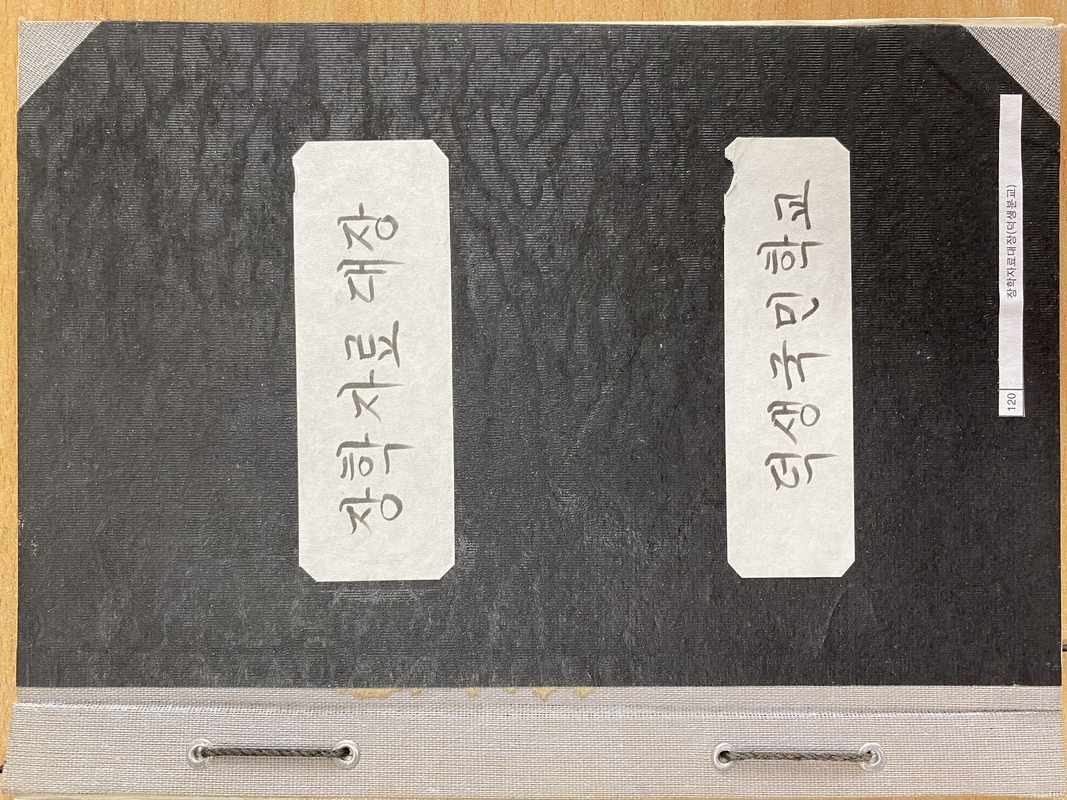 장학자료대장
덕생국민학교
120 장학자료대장(덕생분교)